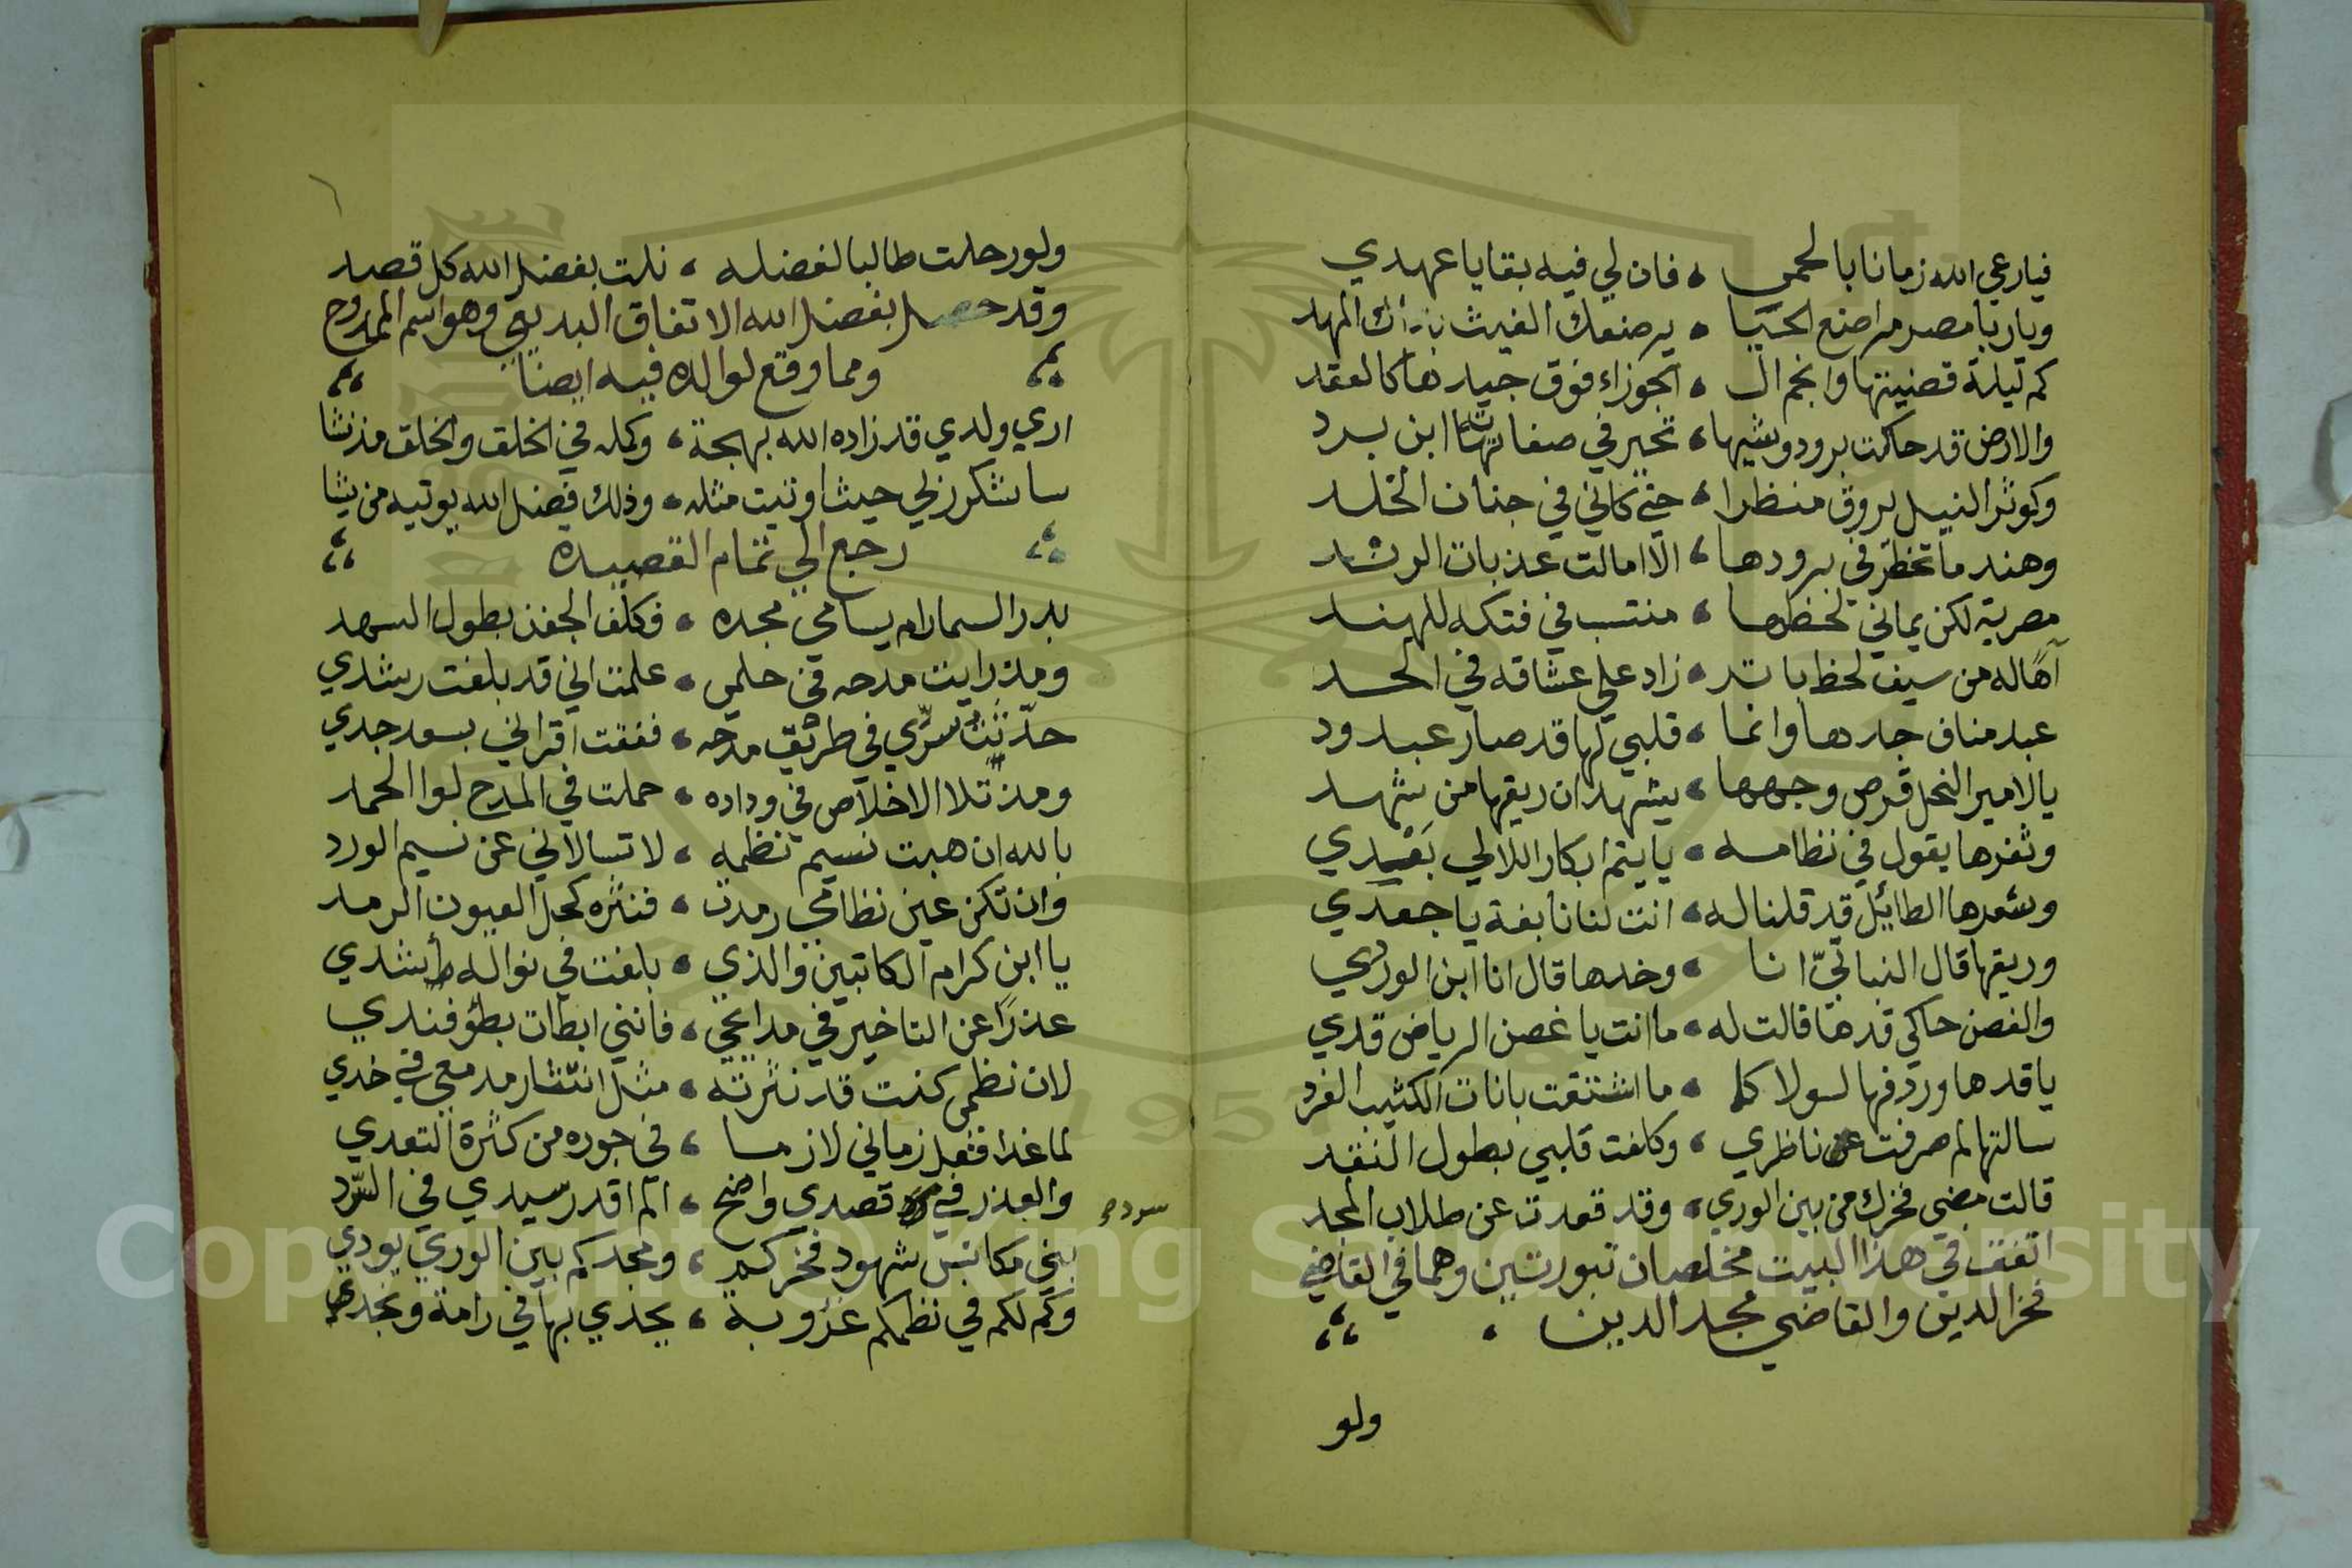 فيارعي الله زمانا بالحمي ، فان لي فيه بقايا عهدي
ويار با مصر مراضع الحيا ، يرضعك الغيث المهد
كم ليلة قضيتها وانجم ال ، الجوزاء فوق جيدها كالعقد
والارض قد حاكت برود وشيها ، تحير في صفاتها ابن برد
وكوثر النيل يروق منظرا ، حتي كاني في جنان الخلد
وهند ما تخطر في برودها ، الا امالت عذبات الرند
مصرية لكن يماني لحظها ، منتسب في فتكه للهند
آهًا له من سيف لحظ باتر ، زاد علي عشاقه في الحد
عبد مناف جدها وانما ، قلبي لها قد صار عبد ود
يا لامير النحل قرص وجهها ، يشهد ان ريقها من شهد
وثغرها يقول في نظامه ، يا يتم ابكار اللالي بَعْدي
وشعرها الطائل قد قلنا له ، انت لنا نابغة يا جعدي
وريقها قال النباتيّ انا ، وخدها قال انا ابن الوردي
والغصن حاكي قدها قالت له ، ما انت يا غصن الرياض قدي
يا قدها وردفها لولا كما ، ما اشتقت بانات الكثيب الفرد
سالتها لم صرفت عن ناظري ، وكلفت قلبي بطول النقد
قالت مضي فخرك من بين الوري ، وقد قعدت عن طلاب المجد
اتفق في هذا البيت مخلصان بتوريتين وهما في القاضي
فخر الدين والقاضي مجد الدين ،
ولو
ولو رحلت طالبا لفضله ، نلت بفضل الله كل قصد
وقد حصل بفضل الله الاتفاق البديع وهو اسم الممدوح
ومما وقع لوالده فيه ايضًا
اري ولدي قد زاده الله بهجة ، وكمله في الخلق والخلق مذ نشا
ساشكر ربي حيث اوتيت مثله ، وذلك فضل الله يوتيه من يشا
رجع الي تمام القصيدة
بدر السما رام يسامي مجده ، فكلف الجفن بطول السهد
ومذ رايت مدحه في حلمي ، علمت اني قد بلغت رشدي
حدّثتُ سرّي في طريق مدحه ، ففقت اقراني بسعد جدي
ومذ تلا الاخلاص في وداده ، حملت في المدح لوا الحمد
بالله ان هبت نسيم نظمه ، لا تسالاني عن نسيم الورد
وان تكن عين نظامي رمدت ، فنثره كحل العيون الرمد
يا ابن كرام الكاتبين والذي ، بلغت في نواله أشدي
عذرًا عن التاخير في مدائحي ، فانني ابطات بطؤ فندي
لان نظمي كنت قد نثرته ، مثل انتثار مدمعي في خدي
لما غدا فعل زماني لازما ، في جوره من كثرة التعدي
والعذر في قصدي واضح ، الم اقدر سيدي في السّرد
سرده
بني مكانس شهود فخركم ، ومجدكم بين الوري يودي
وكم لكم في نظمكم عذوبة ، يحدي بها في رامة ونجد